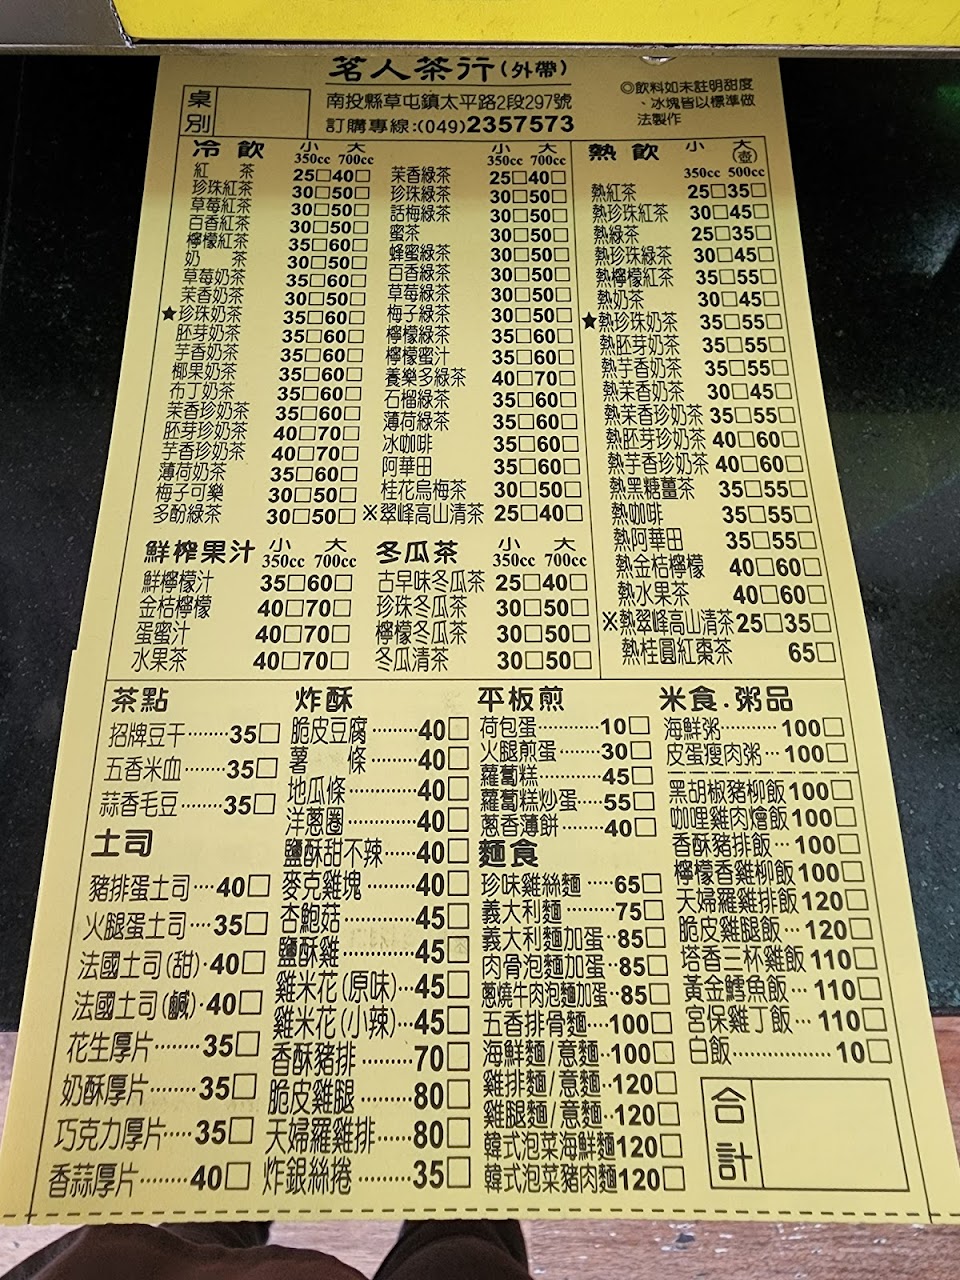 茗人茶行(外帶)
桌別
南投縣草屯鎮太平路2段297號
訂購專線:(049)2357573
◎飲料如未註明甜度
、冰塊皆以標準做
法製作
冷飲 小 大
350cc 700cc
紅茶 25□40□
珍珠紅茶 30□50□
草莓紅茶 30□50□
百香紅茶 30□50□
檸檬紅茶 35□60□
奶茶 30□50□
草莓奶茶 35□60□
茉香奶茶 30□50□
★珍珠奶茶 35□60□
胚芽奶茶 35□60□
芋香奶茶 35□60□
椰果奶茶 35□60□
布丁奶茶 35□60□
茉香珍奶茶 35□60□
胚芽珍奶茶 40□70□
芋香珍奶茶 40□70□
薄荷奶茶 35□60□
梅子可樂 30□50□
多酚綠茶 30□50□
小 大
350cc 700cc
茉香綠茶 25□40□
珍珠綠茶 30□50□
話梅綠茶 30□50□
蜜茶 30□50□
蜂蜜綠茶 30□50□
百香綠茶 30□50□
草莓綠茶 30□50□
梅子綠茶 30□50□
檸檬綠茶 35□60□
檸檬蜜汁 35□60□
養樂多綠茶 40□70□
石榴綠茶 35□60□
薄荷綠茶 35□60□
冰咖啡 35□60□
阿華田 35□60□
桂花烏梅茶 30□50□
※翠峰高山清茶 25□40□
熱飲 小 大(壺)
350cc 500cc
熱紅茶 25□35□
熱珍珠紅茶 30□45□
熱綠茶 25□35□
熱珍珠綠茶 30□45□
熱檸檬紅茶 35□55□
熱奶茶 30□45□
★熱珍珠奶茶 35□55□
熱胚芽奶茶 35□55□
熱芋香奶茶 35□55□
熱茉香奶茶 30□45□
熱茉香珍奶茶 35□55□
熱胚芽珍奶茶 40□60□
熱芋香珍奶茶 40□60□
熱黑糖薑茶 35□55□
熱咖啡 35□55□
熱阿華田 35□55□
熱金桔檸檬 40□60□
熱水果茶 40□60□
※熱翠峰高山清茶 25□35□
熱桂圓紅棗茶 65□
鮮榨果汁 小 大
350cc 700cc
鮮檸檬汁 35□60□
金桔檸檬 40□70□
蛋蜜汁 40□70□
水果茶 40□70□
冬瓜茶 小 大
350cc 700cc
古早味冬瓜茶 25□40□
珍珠冬瓜茶 30□50□
檸檬冬瓜茶 30□50□
冬瓜清茶 30□50□
茶點
招牌豆干……35□
五香米血……35□
蒜香毛豆……35□
土司
豬排蛋土司…40□
火腿蛋土司…35□
法國土司(甜)·40□
法國土司(鹹)·40□
花生厚片……35□
奶酥厚片……35□
巧克力厚片…35□
香蒜厚片……40□
炸酥
脆皮豆腐……40□
薯條………40□
地瓜條………40□
洋蔥圈………40□
鹽酥甜不辣…40□
麥克雞塊……40□
杏鮑菇………45□
鹽酥雞………45□
雞米花(原味)…45□
雞米花(小辣)…45□
香酥豬排……70□
脆皮雞腿……80□
天婦羅雞排…80□
炸銀絲捲……35□
平板煎
荷包蛋………10□
火腿煎蛋……30□
蘿蔔糕………45□
蘿蔔糕炒蛋…55□
蔥香薄餅……40□
麵食
珍味雞絲麵…65□
義大利麵……75□
義大利麵加蛋··85□
肉骨泡麵加蛋··85□
蔥燒牛肉泡麵加蛋··85□
五香排骨麵…100□
海鮮麵/意麵··100□
雞排麵/意麵··120□
雞腿麵/意麵··120□
韓式泡菜海鮮麵120□
韓式泡菜豬肉麵120□
米食.粥品
海鮮粥………100□
皮蛋瘦肉粥…100□
黑胡椒豬柳飯100□
咖哩雞肉燴飯100□
香酥豬排飯…100□
檸檬香雞柳飯100□
天婦羅雞排飯120□
脆皮雞腿飯…120□
塔香三杯雞飯110□
黃金鱈魚飯…110□
宮保雞丁飯…110□
白飯…………10□
合計